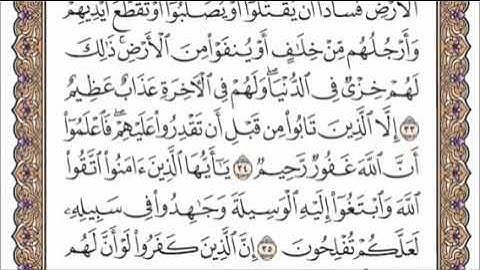 ٱلۡأَرۡضِ فَسَادًا أَن يُقَتَّلُوٓاْ أَوۡ يُصَلَّبُوٓاْ أَوۡ تُقَطَّعَ أَيۡدِيهِمۡ
وَأَرۡجُلُهُم مِّنۡ خِلَٰفٍ أَوۡ يُنفَوۡاْ مِنَ ٱلۡأَرۡضِۚ ذَٰلِكَ
لَهُمۡ خِزۡيٞ فِي ٱلدُّنۡيَاۖ وَلَهُمۡ فِي ٱلۡأٓخِرَةِ عَذَابٌ عَظِيمٌ
٣٣ إِلَّا ٱلَّذِينَ تَابُواْ مِن قَبۡلِ أَن تَقۡدِرُواْ عَلَيۡهِمۡۖ فَٱعۡلَمُوٓاْ
أَنَّ ٱللَّهَ غَفُورٞ رَّحِيمٞ ٣٤ يَٰٓأَيُّهَا ٱلَّذِينَ ءَامَنُواْ ٱتَّقُواْ
ٱللَّهَ وَٱبۡتَغُوٓاْ إِلَيۡهِ ٱلۡوَسِيلَةَ وَجَٰهِدُواْ فِي سَبِيلِهِۦ
لَعَلَّكُمۡ تُفۡلِحُونَ ٣٥ إِنَّ ٱلَّذِينَ كَفَرُواْ لَوۡ أَنَّ لَهُم